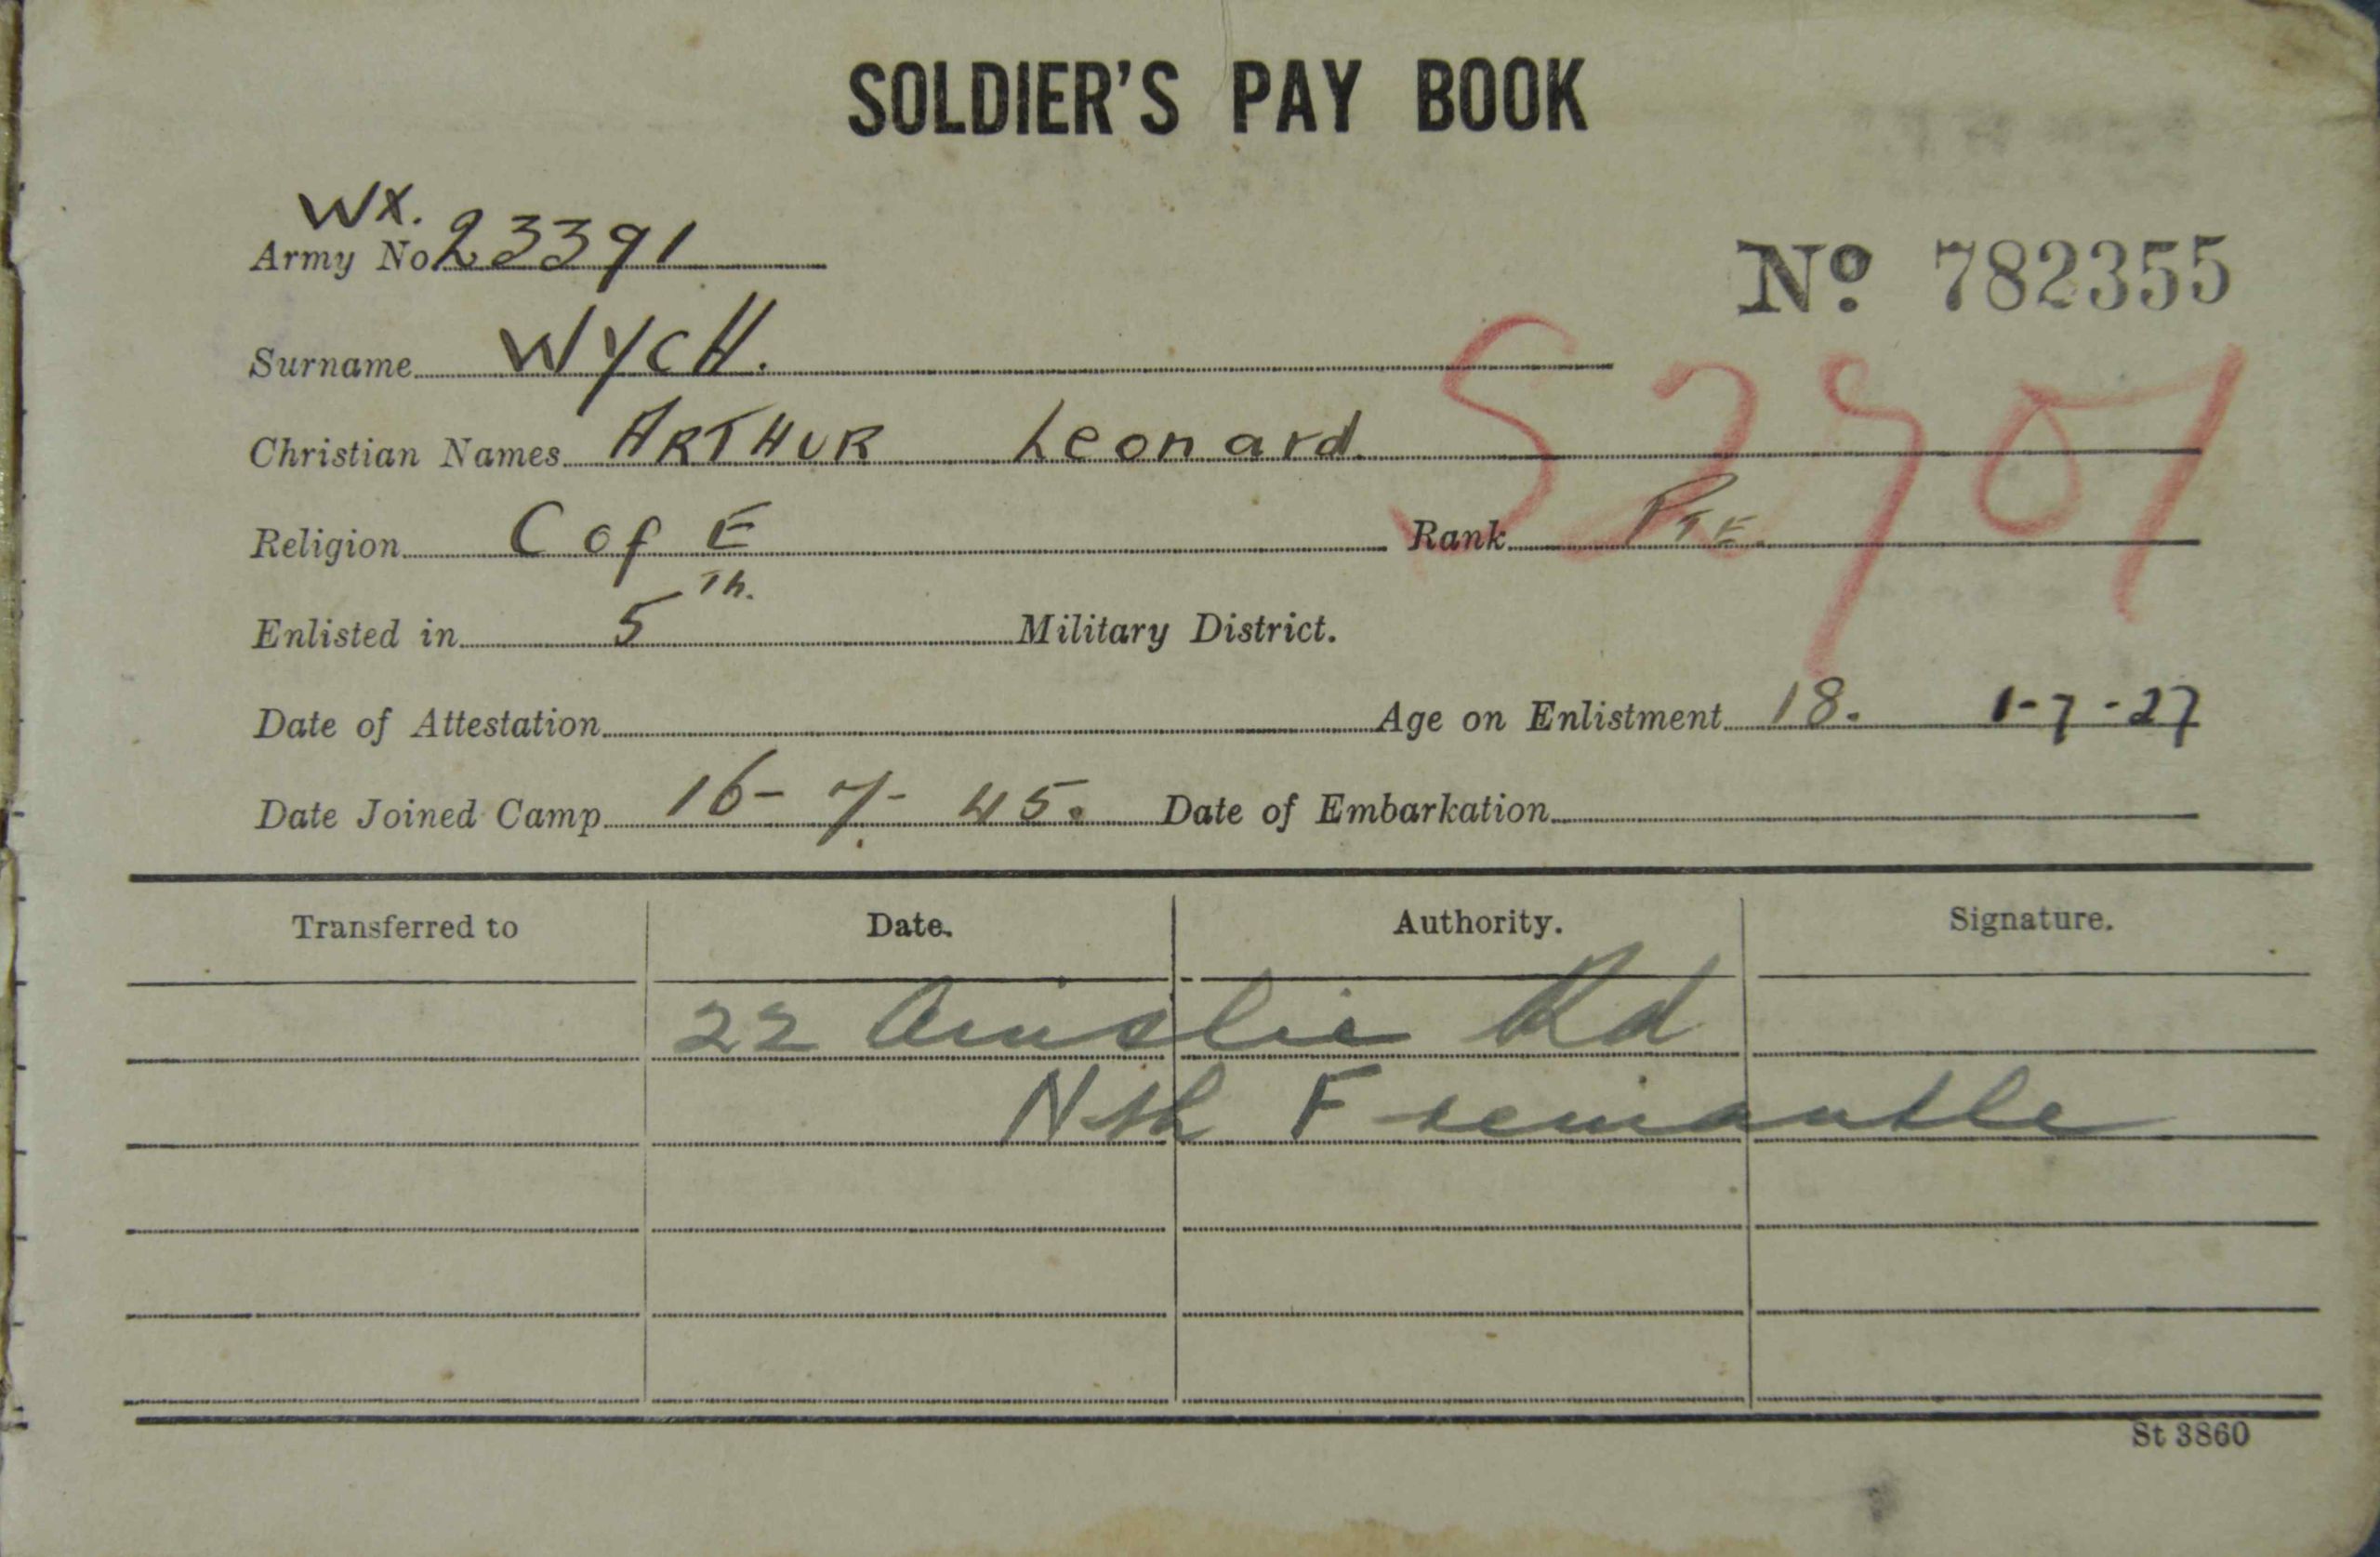 SOLDIER'S PAY BOOK
WX.
Army No. 23391
Nº 782355
Surname WYCH.
Christian Names ARTHUR Leonard.
Religion C of E Rank PTE.
Enlisted in 5Th. Military District.
Date of Attestation Age on Enlistment 18. 1-7-27
Date Joined Camp 16-7-45. Date of Embarkation
Transferred to Date. Authority. Signature.
22 Ainslie Rd
Nth Fremantle
St 3860